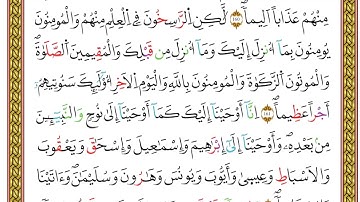 مِنْهُمْ عَذَاباً اَلِيماًۖ ۝ لَّٰكِنِ اِ۬لرَّٰسِخُونَ فِے اِ۬لْعِلْمِ مِنْهُمْ وَالْمُومِنُونَ
يُومِنُونَ بِمَآ أُنزِلَ إِلَيْكَ وَمَآ أُنزِلَ مِن قَبْلِكَ وَالْمُقِيمِينَ اَ۬لصَّلَوٰةَۖ
وَالْمُوتُونَ اَ۬لزَّكَوٰةَ وَالْمُومِنُونَ بِاللَّهِ وَالْيَوْمِ اِ۬لَاخِرِۖ أُوْلَٰٓئِكَ سَنُوتِيهِمُۥٓ
أَجْراً عَظِيماًۖ ۝ اِنَّآ أَوْحَيْنَآ إِلَيْكَ كَمَآ أَوْحَيْنَآ إِلَيٰ نُوحٖ وَالنَّبِيٓـِٕينَ
مِنۢ بَعْدِهِۦۖ وَأَوْحَيْنَآ إِلَيٰٓ إِبْرَٰهِيمَ وَإِسْمَٰعِيلَ وَإِسْحَٰقَ وَيَعْقُوبَ
وَالَاسْبَاطِ وَعِيسَيٰ وَأَيُّوبَ وَيُونُسَ وَهَٰرُونَ وَسُلَيْمَٰنَۖ وَءَاتَيْنَا